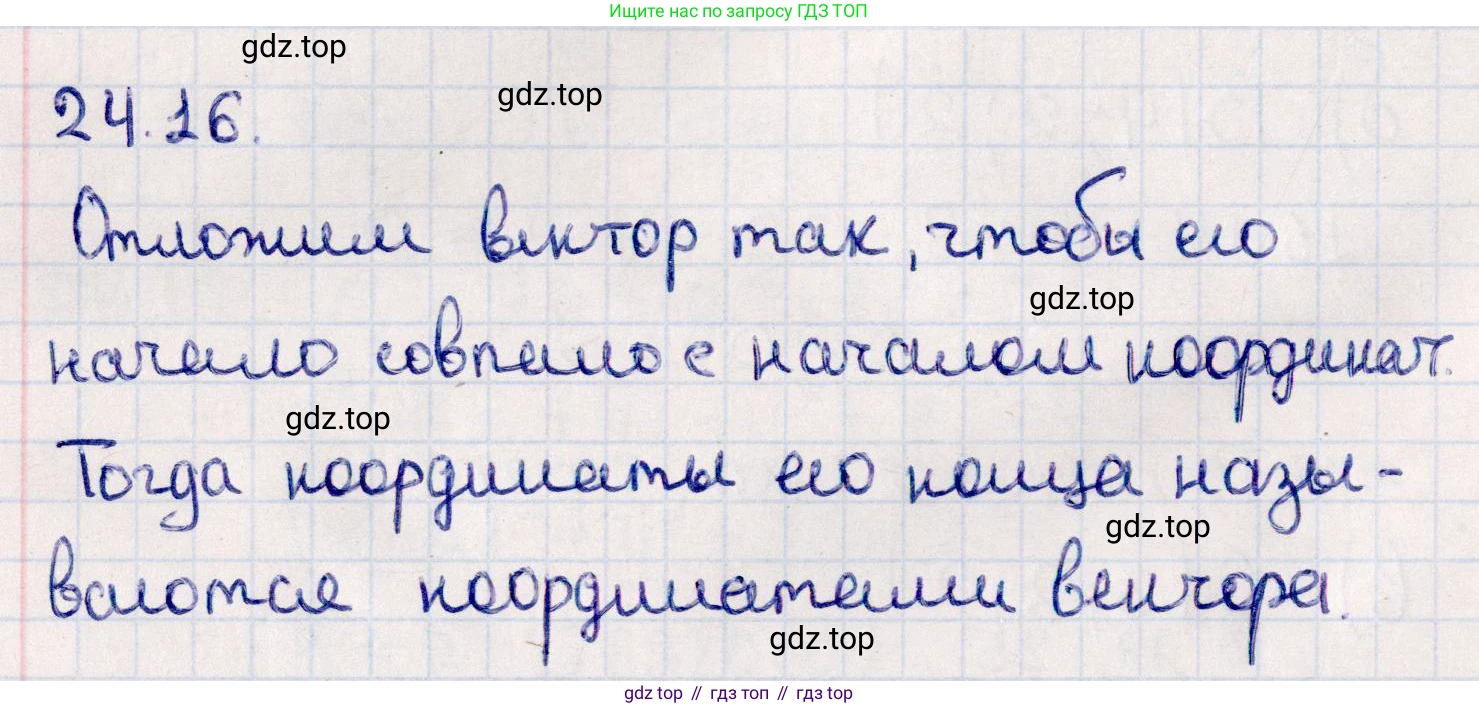 Ищите нас по запросу ГДЗ ТОП
gdz.top
gdz.top
24.16.
Отложим вектор так, чтобы его
gdz.top
начало совпало с началом координат.
gdz.top
Тогда координаты его конца назы-
gdz.top
ваются координатами вектора.
gdz.top
gdz top // гдз топ // гдз top